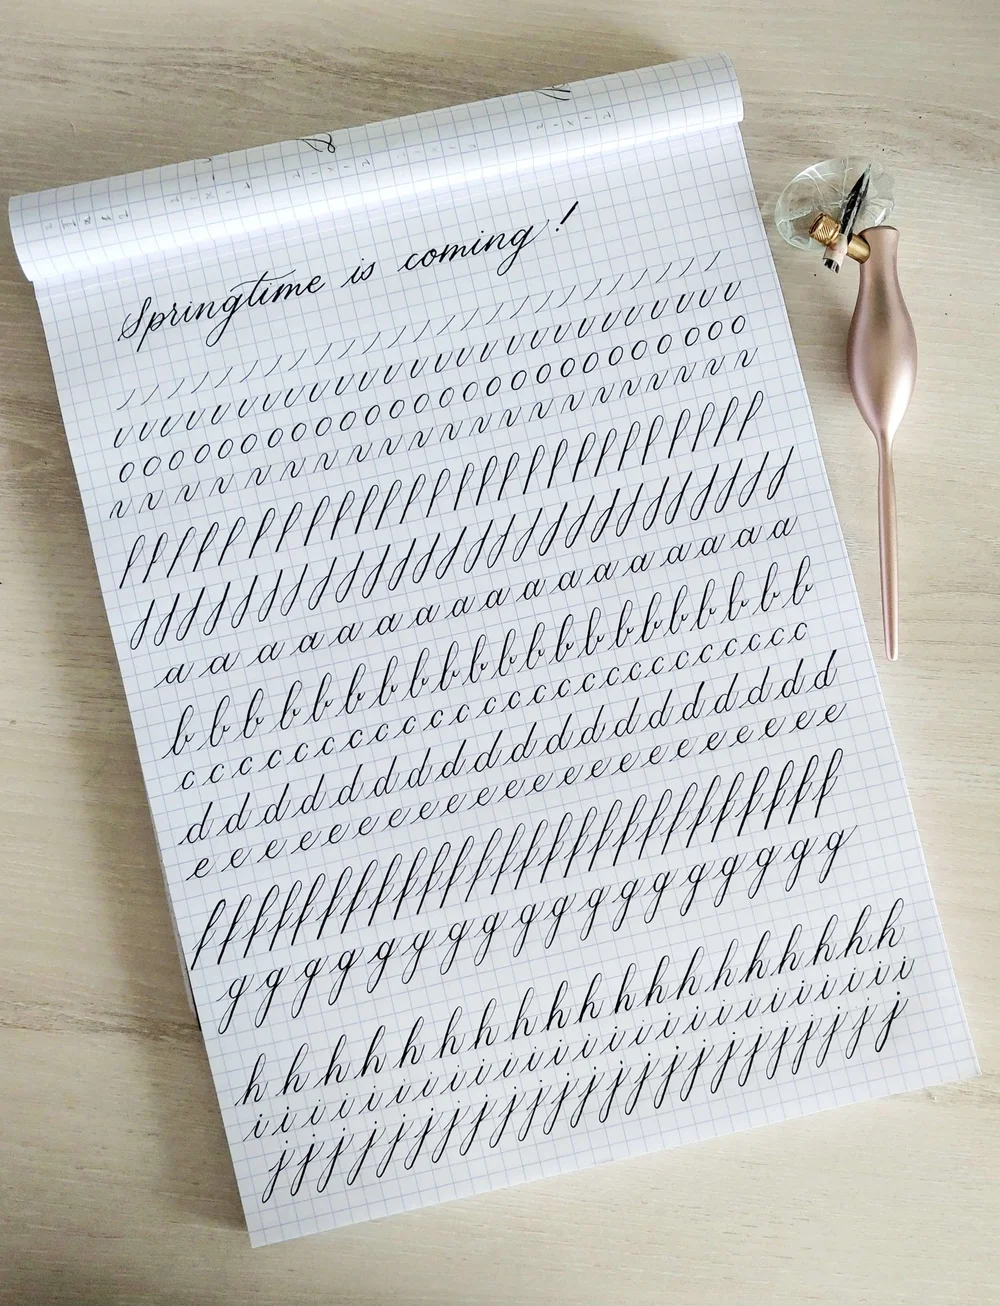 Springtime is coming!
o o o o o o o o o o o o o o o o o o o o o o o o o o
a a a a a a a a a a a a a a a a a
b b b b b b b b b b b b b b b b b b b b b
c c c c c c c c c c c c c c c c c c c c c c c c
d d d d d d d d d d d d d d d d d d d
e e e e e e e e e e e e e e e e e e e e e e
f f f f f f f f f f f f f f f f f f f f f f f f f f
g g g g g g g g g g g g g g g g g g
h h h h h h h h h h h h h h h h h h h
i i i i i i i i i i i i i i i i i i i i i i i i
j j j j j j j j j j j j j j j j j j j j j j j j